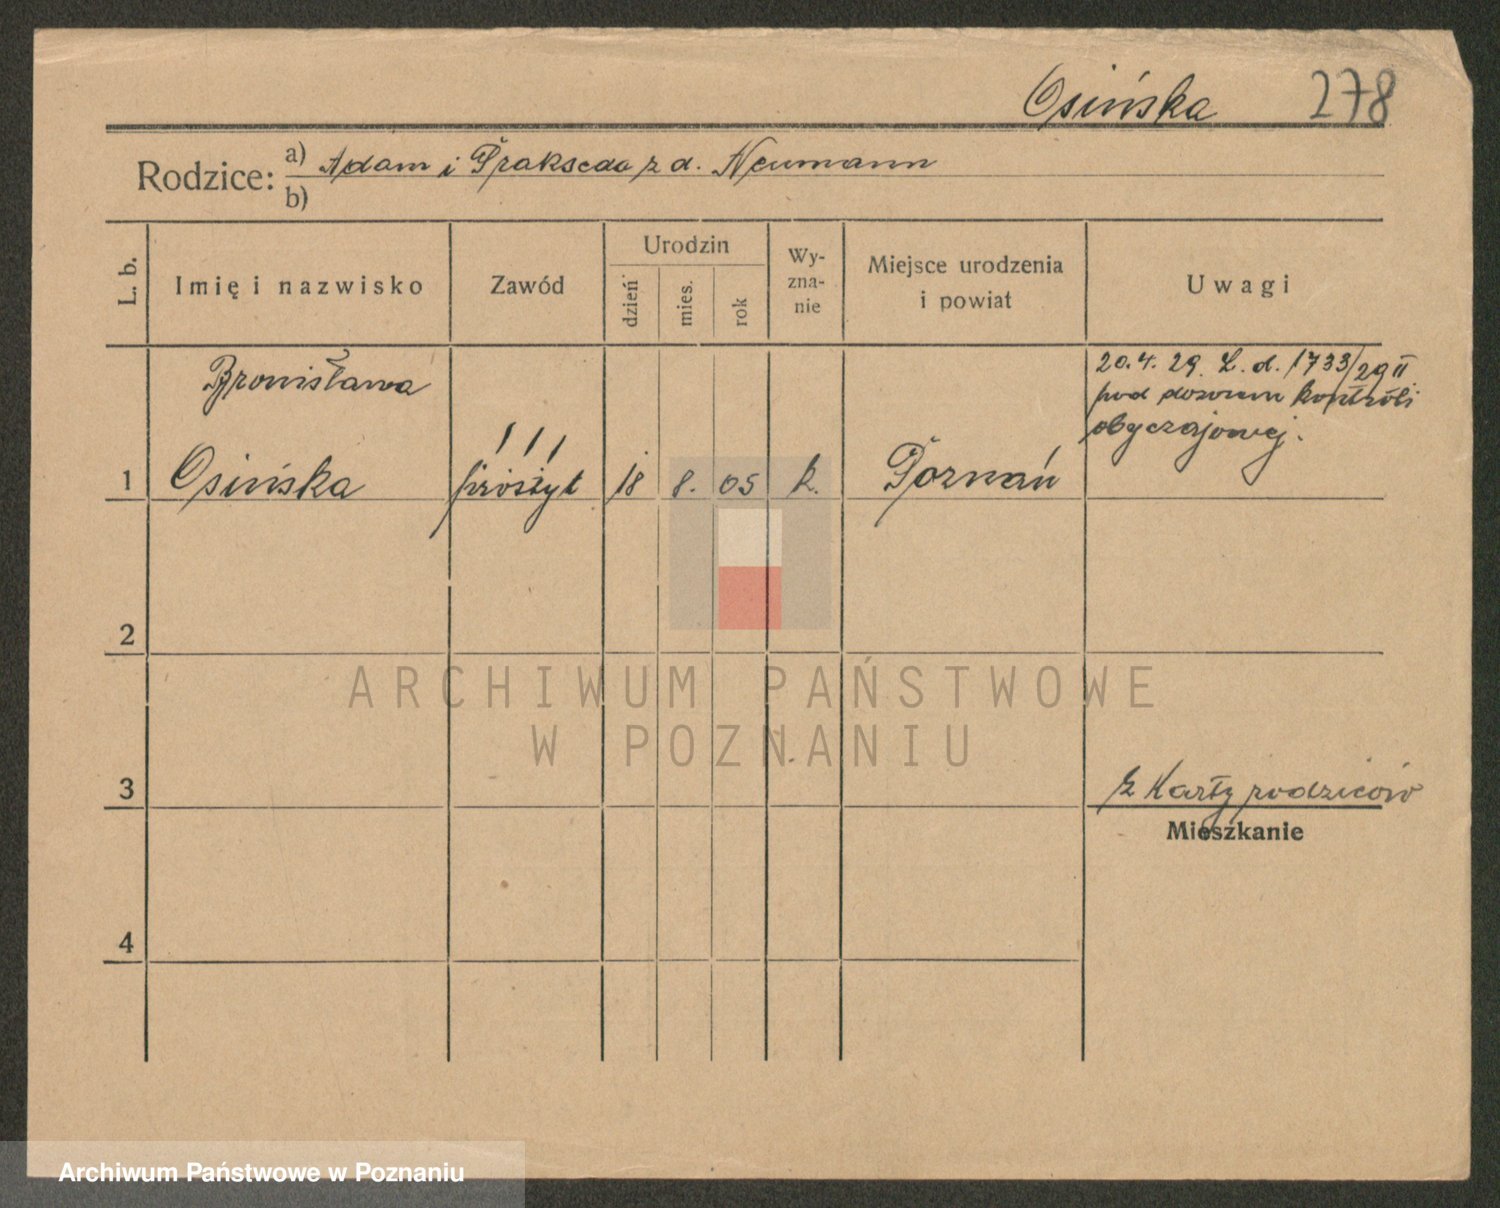 Osińska 278
Rodzice: a) Adam i Prakseda z d. Neumann
b)
L. b.
Imię i nazwisko
Zawód
Urodzin
dzień
mies.
rok
Wy-
zna-
nie
Miejsce urodzenia
i powiat
Uwagi
20.4.29. L. d. 1733/29 II
pod dozorem kontroli
obyczajowej.
Bronisława
1 Osińska 18 8. 05 k. Poznań
2
3
Z Karty rodziców
Mieszkanie
4
ARCHIWUM PAŃSTWOWE
W POZNANIU
Archiwum Państwowe w Poznaniu